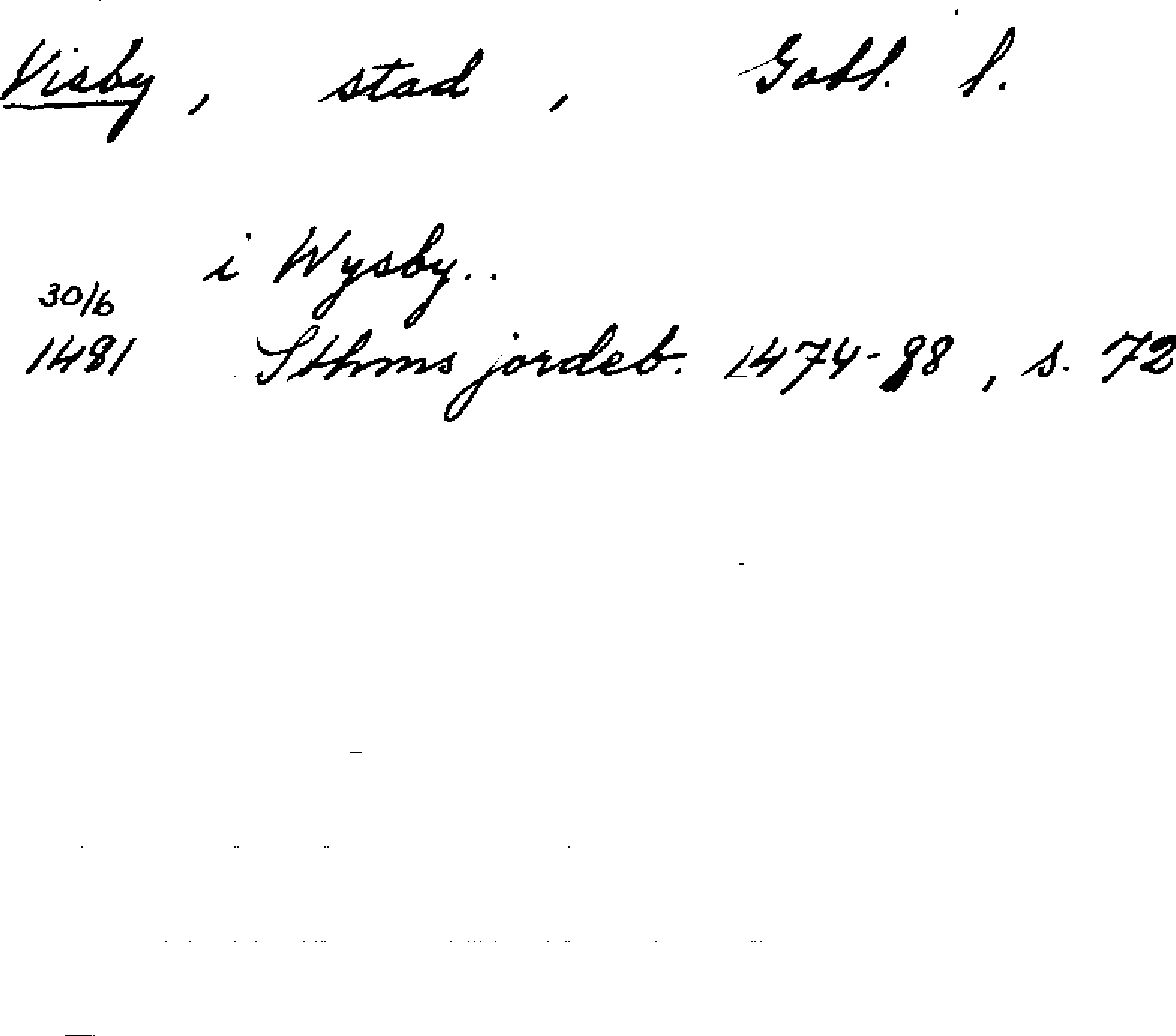 Visby, stad, Gotl. l.
i Wysby..
30/6
1481 Sthms jordeb. 1474-88, s. 72